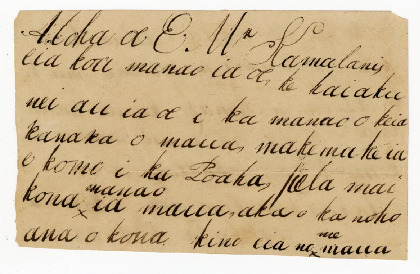 Aloha oe E. Mr Kamalani,
eia kou manao ia oe, ke haiaku
nei au ia oe i ka manao o keia
kanaka o maua, makemake ia
e komo i ka Poaha, pela mai
kona manao ia maua, aka o ka noho
ana o kona kino eia no me maua